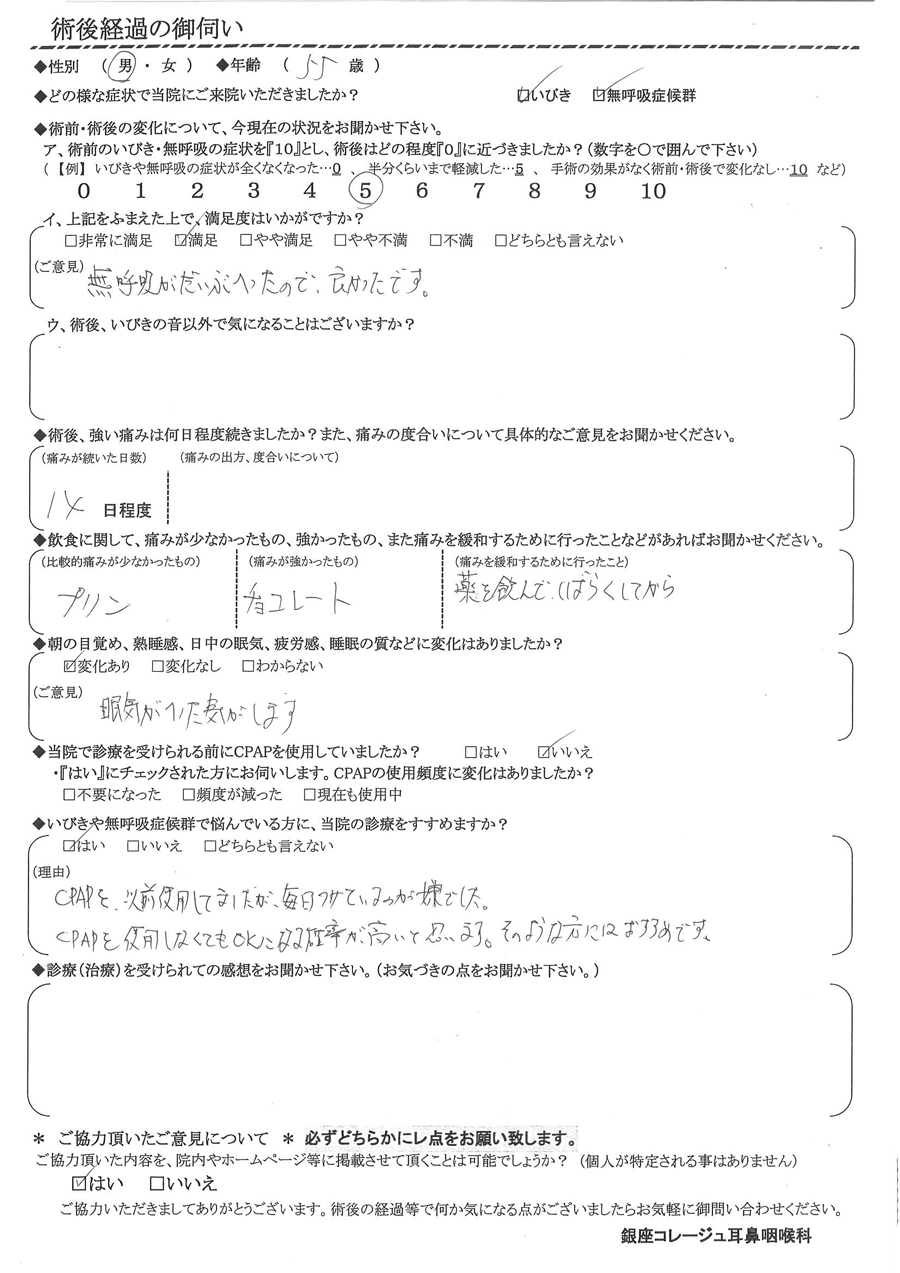 術後経過の御伺い
◆性別 （ 男 ・ 女 ） ◆年齢 （ 55 歳 ）
◆どの様な症状で当院にご来院いただきましたか？ ☑いびき ☑無呼吸症候群
◆術前・術後の変化について、今現在の状況をお聞かせ下さい。
ア、術前のいびき・無呼吸の症状を『10』とし、術後はどの程度『0』に近づきましたか？（数字を〇で囲んで下さい）
（ 【例】 いびきや無呼吸の症状が全くなくなった…0 、 半分くらいまで軽減した…5 、 手術の効果がなく術前・術後で変化なし…10 など）
0 1 2 3 4 5 6 7 8 9 10
イ、上記をふまえた上で、満足度はいかがですか？
□非常に満足 ☑満足 □やや満足 □やや不満 □不満 □どちらとも言えない
（ご意見） 無呼吸がだいぶへったので、良かったです。
ウ、術後、いびきの音以外で気になることはございますか？
◆術後、強い痛みは何日程度続きましたか？また、痛みの度合いについて具体的なご意見をお聞かせください。
（痛みが続いた日数） （痛みの出方、度合いについて）
14 日程度
◆飲食に関して、痛みが少なかったもの、強かったもの、また痛みを緩和するために行ったことなどがあればお聞かせください。
（比較的痛みが少なかったもの） （痛みが強かったもの） （痛みを緩和するために行ったこと）
プリン チョコレート 薬を飲んで、しばらくしてから
◆朝の目覚め、熟睡感、日中の眠気、疲労感、睡眠の質などに変化はありましたか？
☑変化あり □変化なし □わからない
（ご意見） 眠気がへった気がします
◆当院で診療を受けられる前にCPAPを使用していましたか？ □はい ☑いいえ
・『はい』にチェックされた方にお伺いします。CPAPの使用頻度に変化はありましたか？
□不要になった □頻度が減った □現在も使用中
◆いびきや無呼吸症候群で悩んでいる方に、当院の診療をすすめますか？
☑はい □いいえ □どちらとも言えない
（理由）
CPAPを、以前使用してましたが、毎日つけているのが嫌でした。
CPAPを使用しなくてもOKになる確率が高いと思います。そのような方にはおすすめです。
◆診療（治療）を受けられての感想をお聞かせ下さい。（お気づきの点をお聞かせ下さい。）
＊ ご協力頂いたご意見について ＊ 必ずどちらかにレ点をお願い致します。
ご協力頂いた内容を、院内やホームページ等に掲載させて頂くことは可能でしょうか？ （個人が特定される事はありません）
☑はい □いいえ
ご協力いただきましてありがとうございます。術後の経過等で何か気になる点がございましたらお気軽に御問い合わせください。
銀座コレージュ耳鼻咽喉科